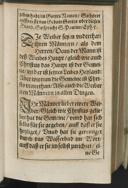 Die Weiber seyn underthan
ihren Männern / als dem
Herren / Dann der Mann ist
deß Weibes Haupt / gleich wie auch
Christus das Haupt ist der Gemei-
ne / und er ist seines Leibes Heiland.
Aber wie nun die Gemeine ist Chri-
sto unterthan / Also auch die Weiber
ihren Männern in allen Dingen.
Ihr Männer liebet ewere Wei-
ber / Gleich wie Christus gelie-
bet hat die Gemeine / und hat sich
selbst für sie gegeben / auff daß er sie
heyliget / Und hat sie gereiniget
durch das Wasserbad im Wort /
auff daß er sie ihm selbst zurichtet / ei-
ne Ge